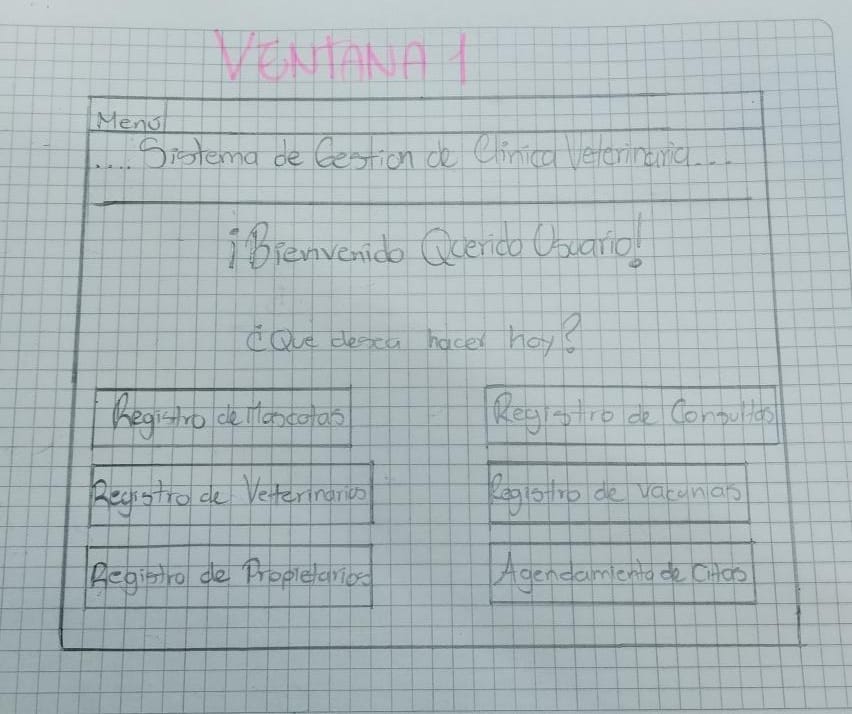 VENTANA 1
Menú
.... Sistema de Gestion de Clínica Veterinaria...
¡Bienvenido Querido Usuario!
¿Qué desea hacer hoy?
Registro de Mascotas
Registro de Consultas
Registro de Veterinarios
Registro de Vacunas
Registro de Propietarios
Agendamiento de Citas